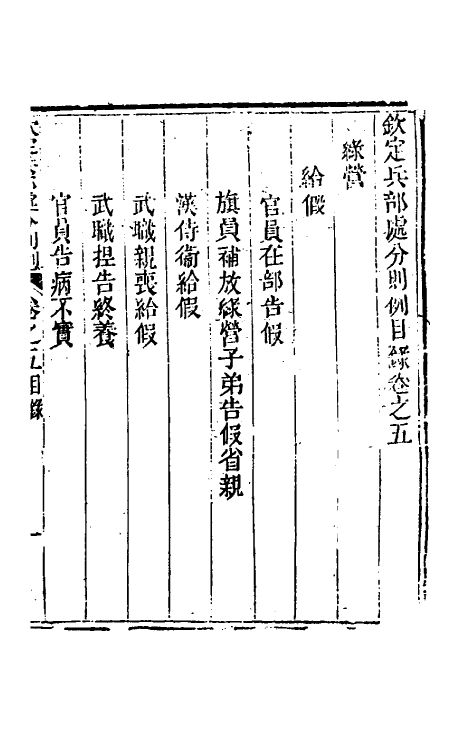 欽定兵部處分則例目錄卷之五
綠營
給假
官員在部告假
旗員補放綠營子弟告假省親
漢侍衞給假
武職親喪給假
武職捏告終養
官員告病不實
欽定兵部處分則例 卷之五目錄 一